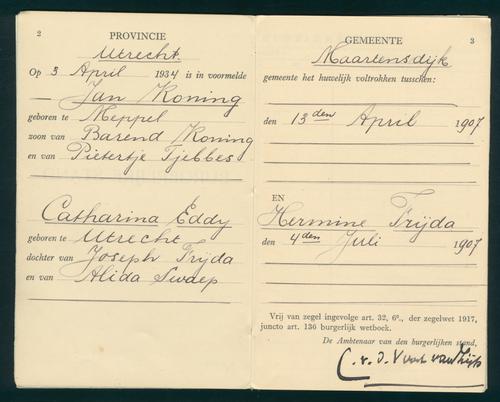 2
PROVINCIE
Utrecht.
Op 5 April 1934 is in voormelde
Jan Koning
geboren te Meppel
zoon van Barend Koning
en van Pietertje Tjebbes
Catharina Eddy
geboren te Utrecht
dochter van Joseph Frijda
en van Alida Swaep
GEMEENTE
3
Maartensdijk
gemeente het huwelijk voltrokken tusschen:
den 13den April 1907
EN
Hermine Frijda
den 4den Juli 1907
Vrij van zegel ingevolge art. 32, 6°., der zegelwet 1917,
juncto art. 136 burgerlijk wetboek.
De Ambtenaar van den burgerlijken stand,